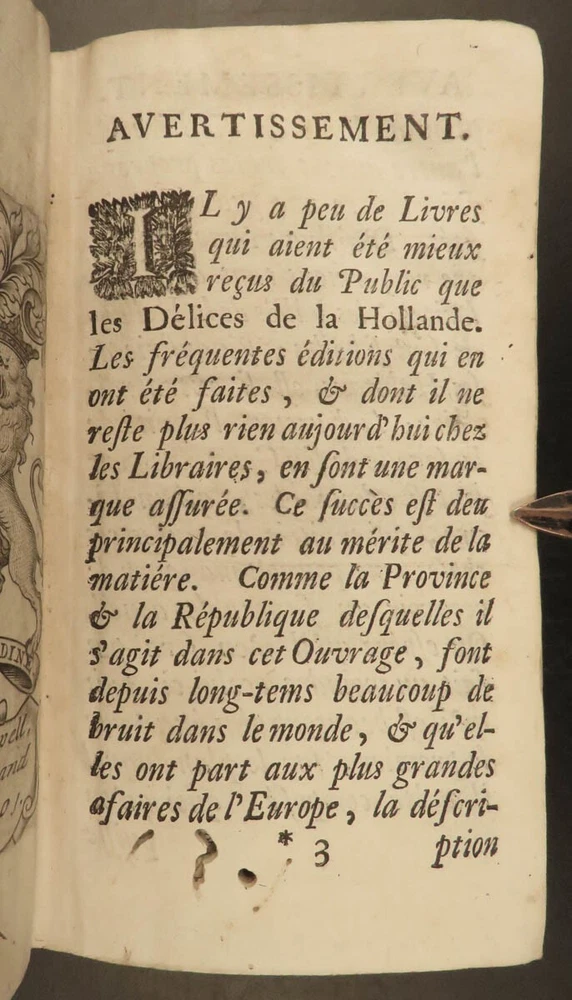 AVERTISSEMENT.
IL y a peu de Livres
qui aient été mieux
reçus du Public que
les Délices de la Hollande.
Les fréquentes éditions qui en
ont été faites, & dont il ne
reſte plus rien aujourd'hui chez
les Libraires, en ſont une mar-
que aſſurée. Ce ſuccès eſt deu
principalement au mérite de la
matiére. Comme la Province
& la République deſquelles il
s'agit dans cet Ouvrage, font
depuis long-tems beaucoup de
bruit dans le monde, & qu'el-
les ont part aux plus grandes
afaires de l'Europe, la déſcri-
* 3 ption